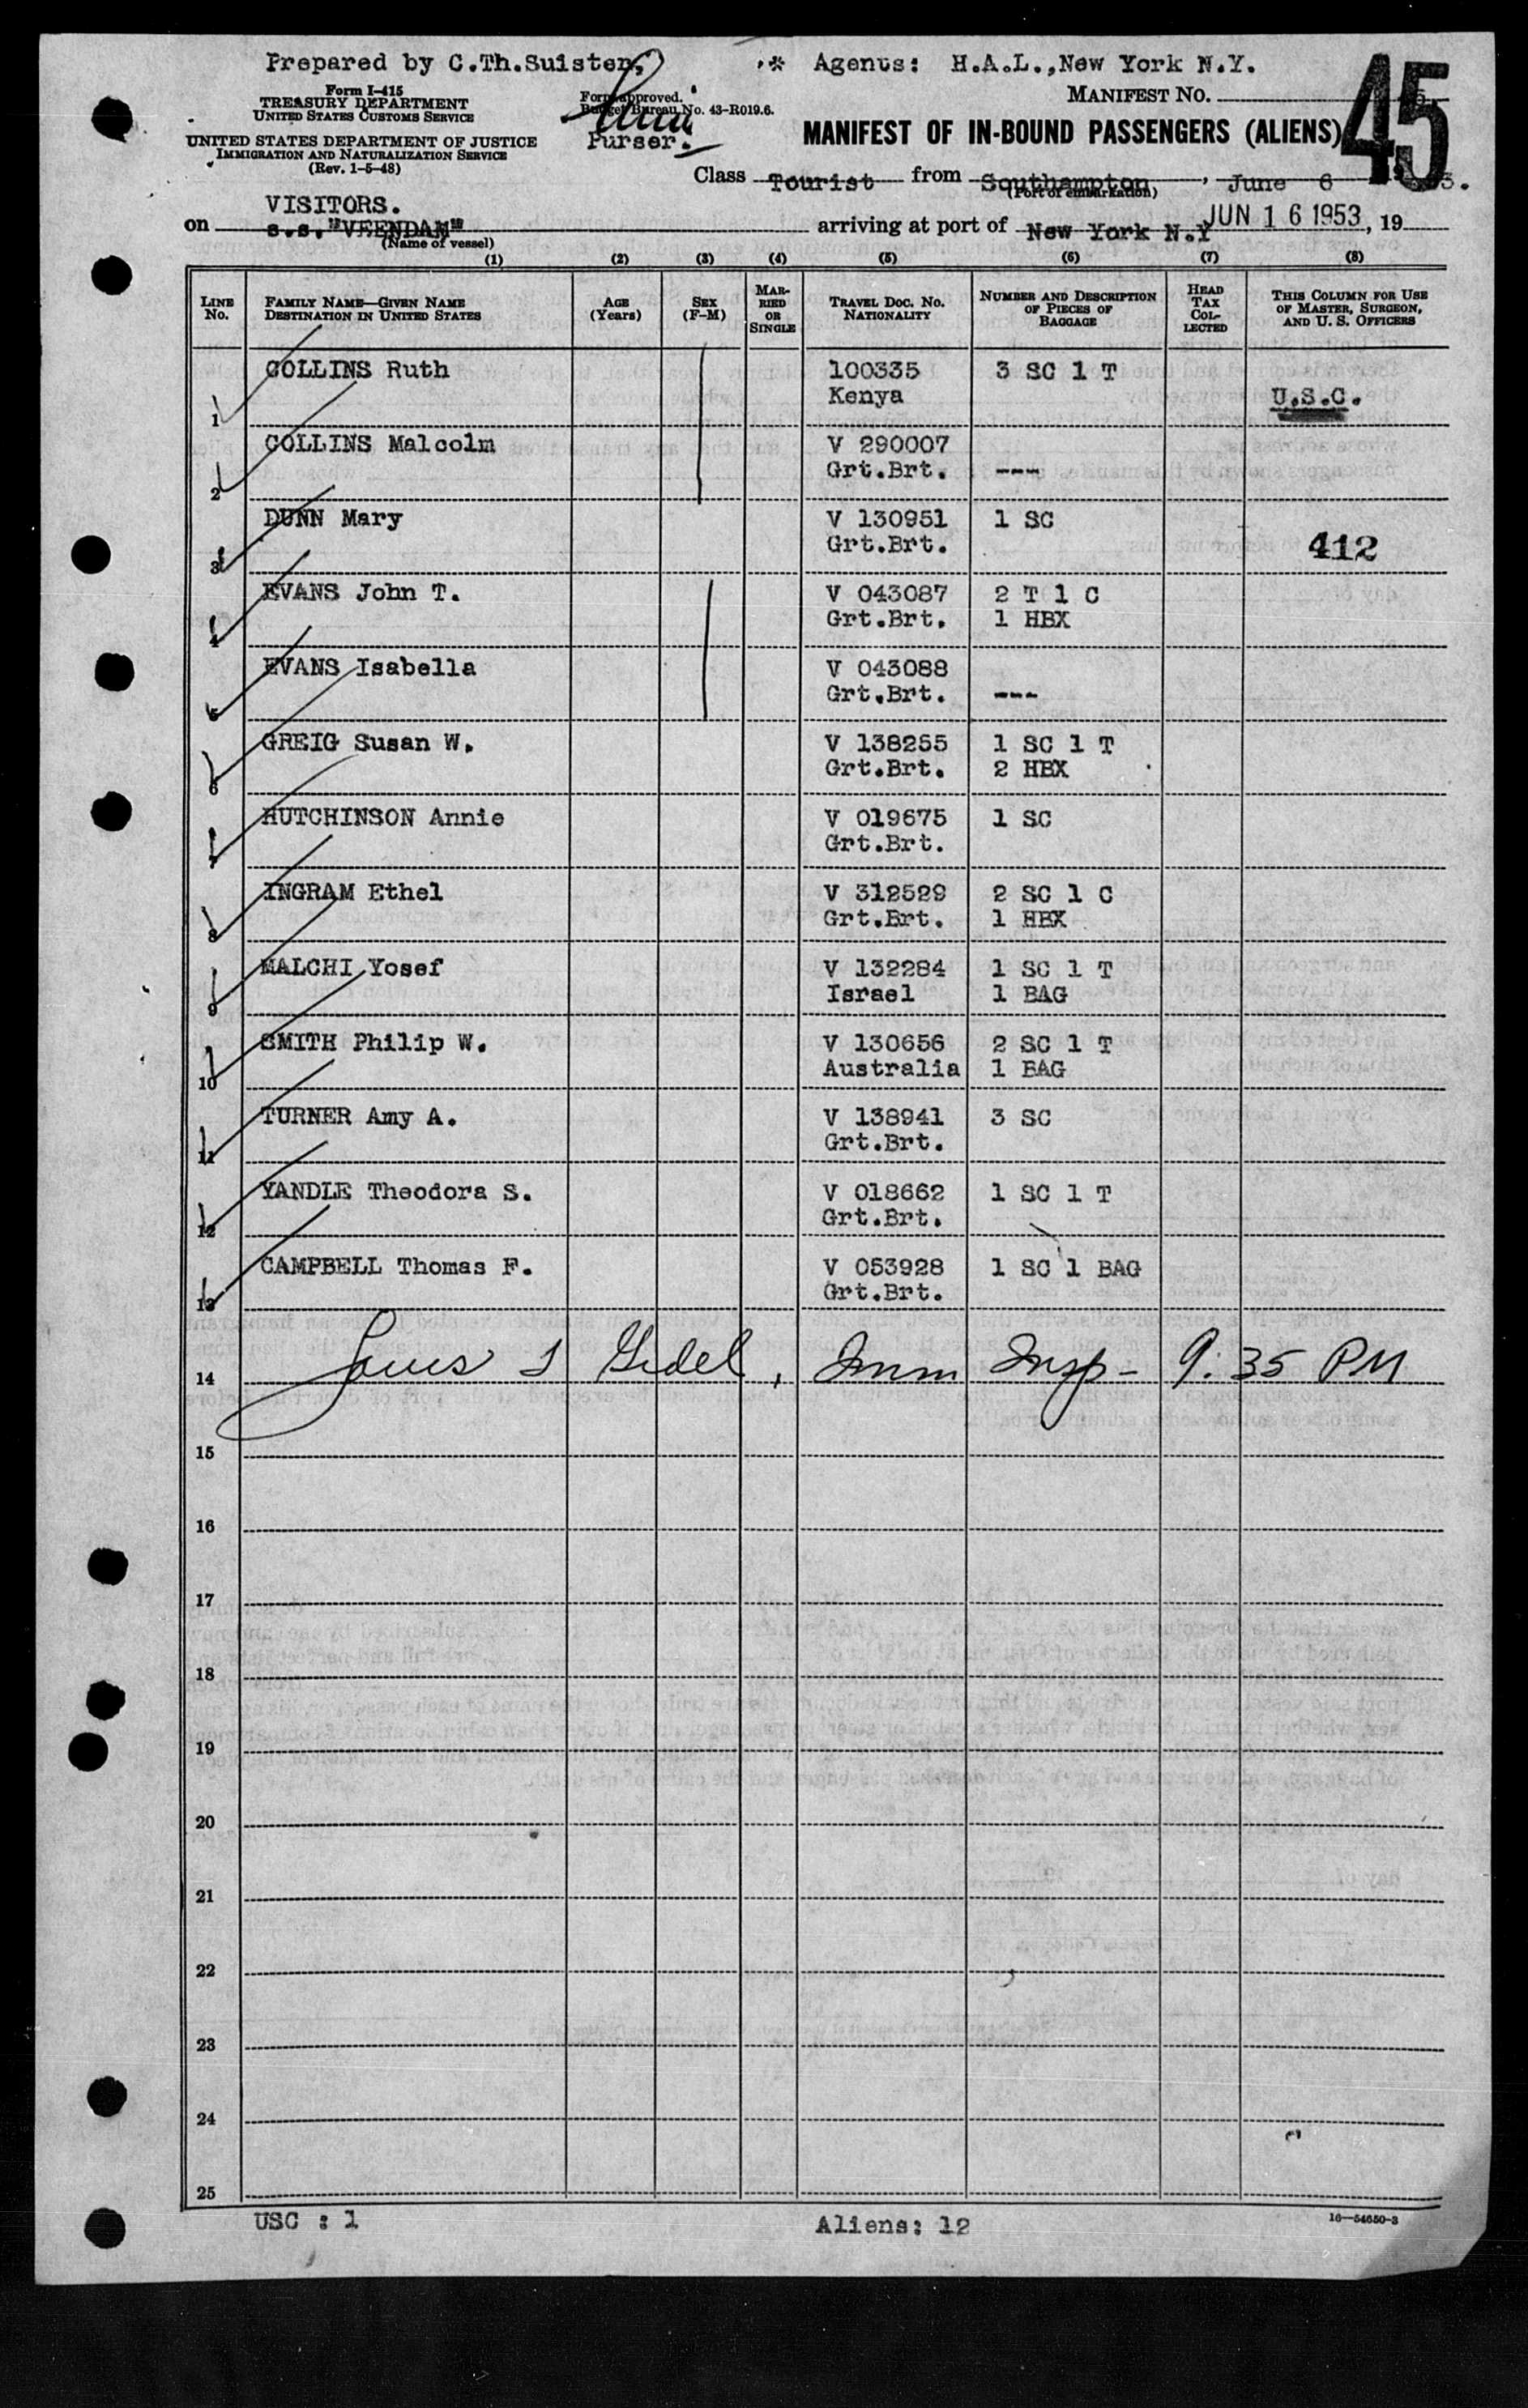 Prepared by C.Th.Suisten, * Agents: H.A.L.,New York N.Y.
Form I-415
TREASURY DEPARTMENT
UNITED STATES CUSTOMS SERVICE
UNITED STATES DEPARTMENT OF JUSTICE
IMMIGRATION AND NATURALIZATION SERVICE
(Rev. 1-5-48)
Form approved.
Budget Bureau No. 43-R019.6.
Purser.
MANIFEST NO.
45
MANIFEST OF IN-BOUND PASSENGERS (ALIENS)
Class Tourist from Southampton, June 6
(Port of embarkation)
VISITORS.
on s.s."VEENDAM" arriving at port of New York N.Y JUN 16 1953, 19
(Name of vessel)
(1) (2) (3) (4) (5) (6) (7) (8)
LINE NO. FAMILY NAME—GIVEN NAME DESTINATION IN UNITED STATES AGE (Years) SEX (F-M) MARRIED OR SINGLE TRAVEL DOC. NO. NATIONALITY NUMBER AND DESCRIPTION OF PIECES OF BAGGAGE HEAD TAX COLLECTED THIS COLUMN FOR USE OF MASTER, SURGEON, AND U. S. OFFICERS
COLLINS Ruth 100335 3 SC 1 T
1 Kenya U.S.C.
COLLINS Malcolm V 290007
2 Grt.Brt. ---
DUNN Mary V 130951 1 SC
3 Grt.Brt. 412
EVANS John T. V 043087 2 T 1 C
4 Grt.Brt. 1 HBX
EVANS Isabella V 043088
5 Grt.Brt. ---
GREIG Susan W. V 138255 1 SC 1 T
6 Grt.Brt. 2 HBX
HUTCHINSON Annie V 019675 1 SC
7 Grt.Brt.
INGRAM Ethel V 312529 2 SC 1 C
8 Grt.Brt. 1 HBX
MALCHI Yosef V 132284 1 SC 1 T
9 Israel 1 BAG
SMITH Philip W. V 130656 2 SC 1 T
10 Australia 1 BAG
TURNER Amy A. V 138941 3 SC
11 Grt.Brt.
YANDLE Theodora S. V 018662 1 SC 1 T
12 Grt.Brt.
CAMPBELL Thomas F. V 053928 1 SC 1 BAG
13 Grt.Brt.
14 Louis Gedel, Imm Insp- 9:35 PM
15
16
17
18
19
20
21
22
23
24
25
USC : 1 Aliens: 12 16—54650-3